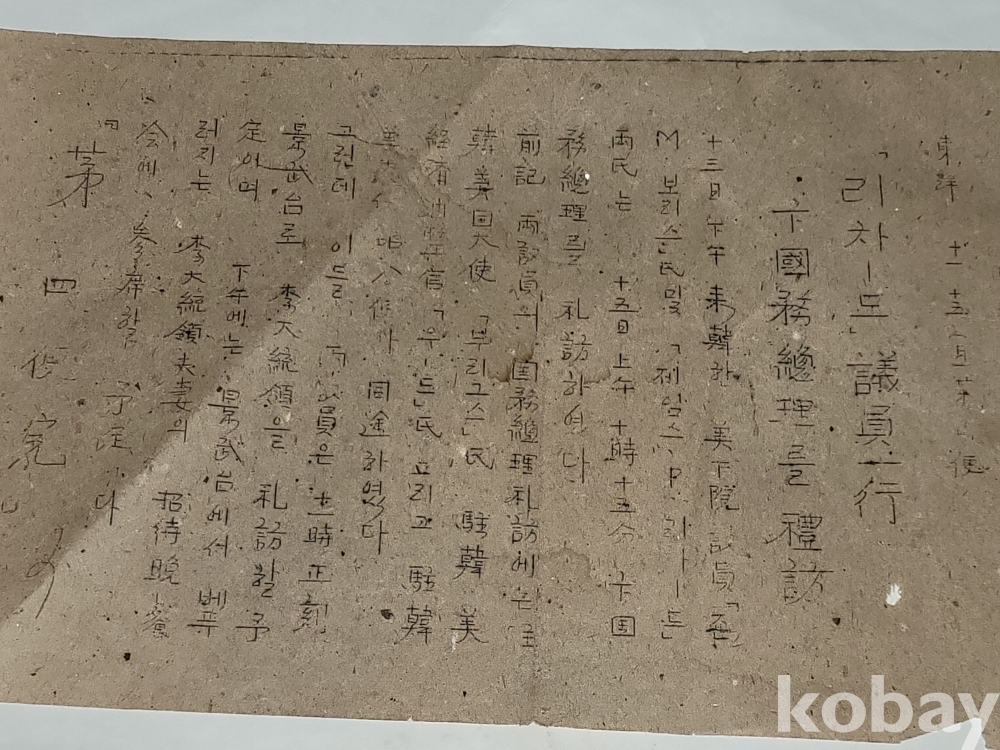 東洋 十一、十五、月 第 一便
「리차ー드」議員一行
卞國務總理를 禮訪
十三日 下午 來韓한 美下院 議員「존」
M 보리슨氏 및 「제임스」P. 리차ー드」
兩氏는 十五日 上午 十時十五分 卞國
務總理를 礼訪하였다
前記 兩議員의 国務總理 礼訪에는 主
韓 美国大使 「부리그스」氏 駐韓 美
経濟 「우ー드」氏 그리고 駐韓
美 同途하였다
그런데 이들 議員은 十一時 正刻
景武台로 李大統領을 礼訪할 予
定이며 下午에는 景武台에서 베푸
러지는 李大統領夫妻의 招待晩餐
会에 參席할 予定이다
第四